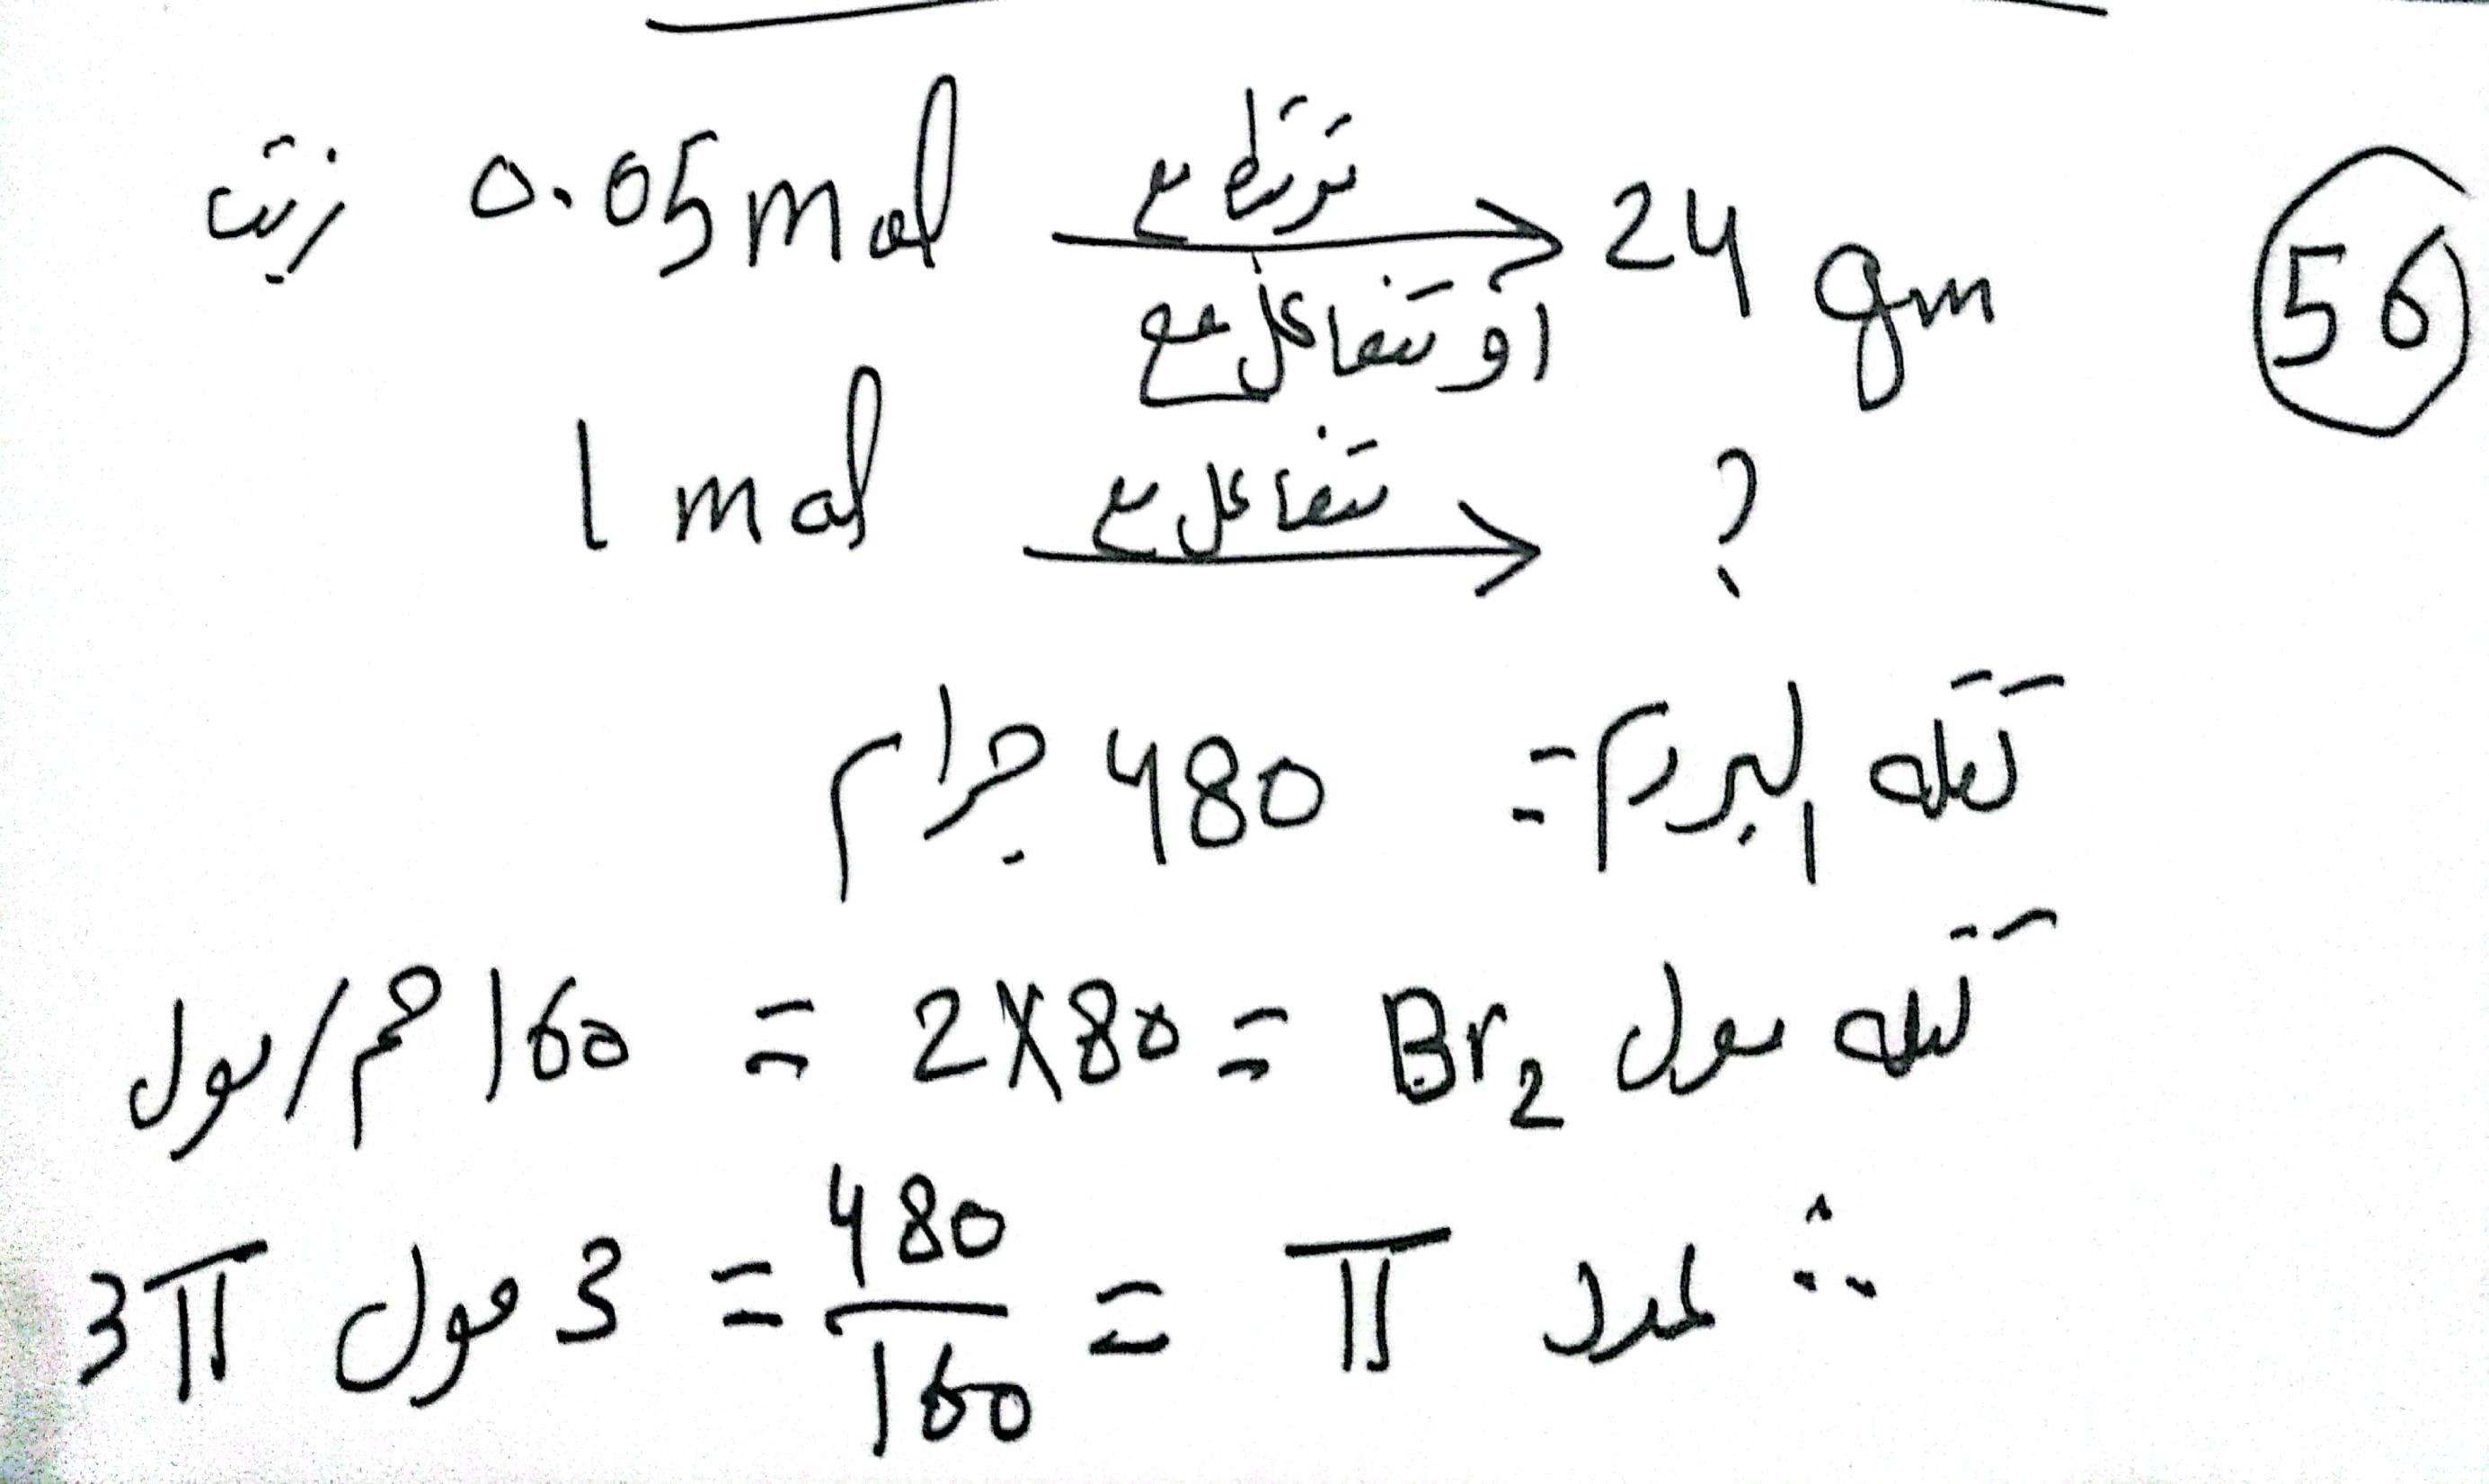 56
زيت 0.05 mol ترتبط مع → 24 gm
أو تتفاعل مع
1 mol تتفاعل مع → ?
كتلة البروم = 480 جرام
كتلة مول Br₂ = 2X80 = 160 جم/مول
∴ عدد π = 480/160 = 3 مول 3π